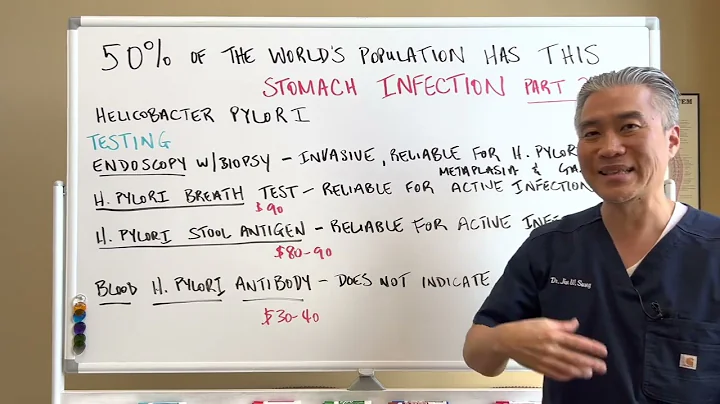 50% OF THE WORLD'S POPULATION HAS THIS
STOMACH INFECTION PART
HELICOBACTER PYLORI
TESTING
ENDOSCOPY W/BIOPSY - INVASIVE, RELIABLE FOR H. PYLORI
METAPLASIA &
H. PYLORI BREATH TEST - RELIABLE FOR ACTIVE INFECTION
$90
H. PYLORI STOOL ANTIGEN - RELIABLE FOR ACTIVE
$80-90
BLOOD H. PYLORI ANTIBODY - DOES NOT INDICATE
$30-40
Dr. Jin W. Sung
carhartt